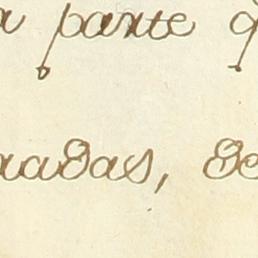 a parte q
uadas, de